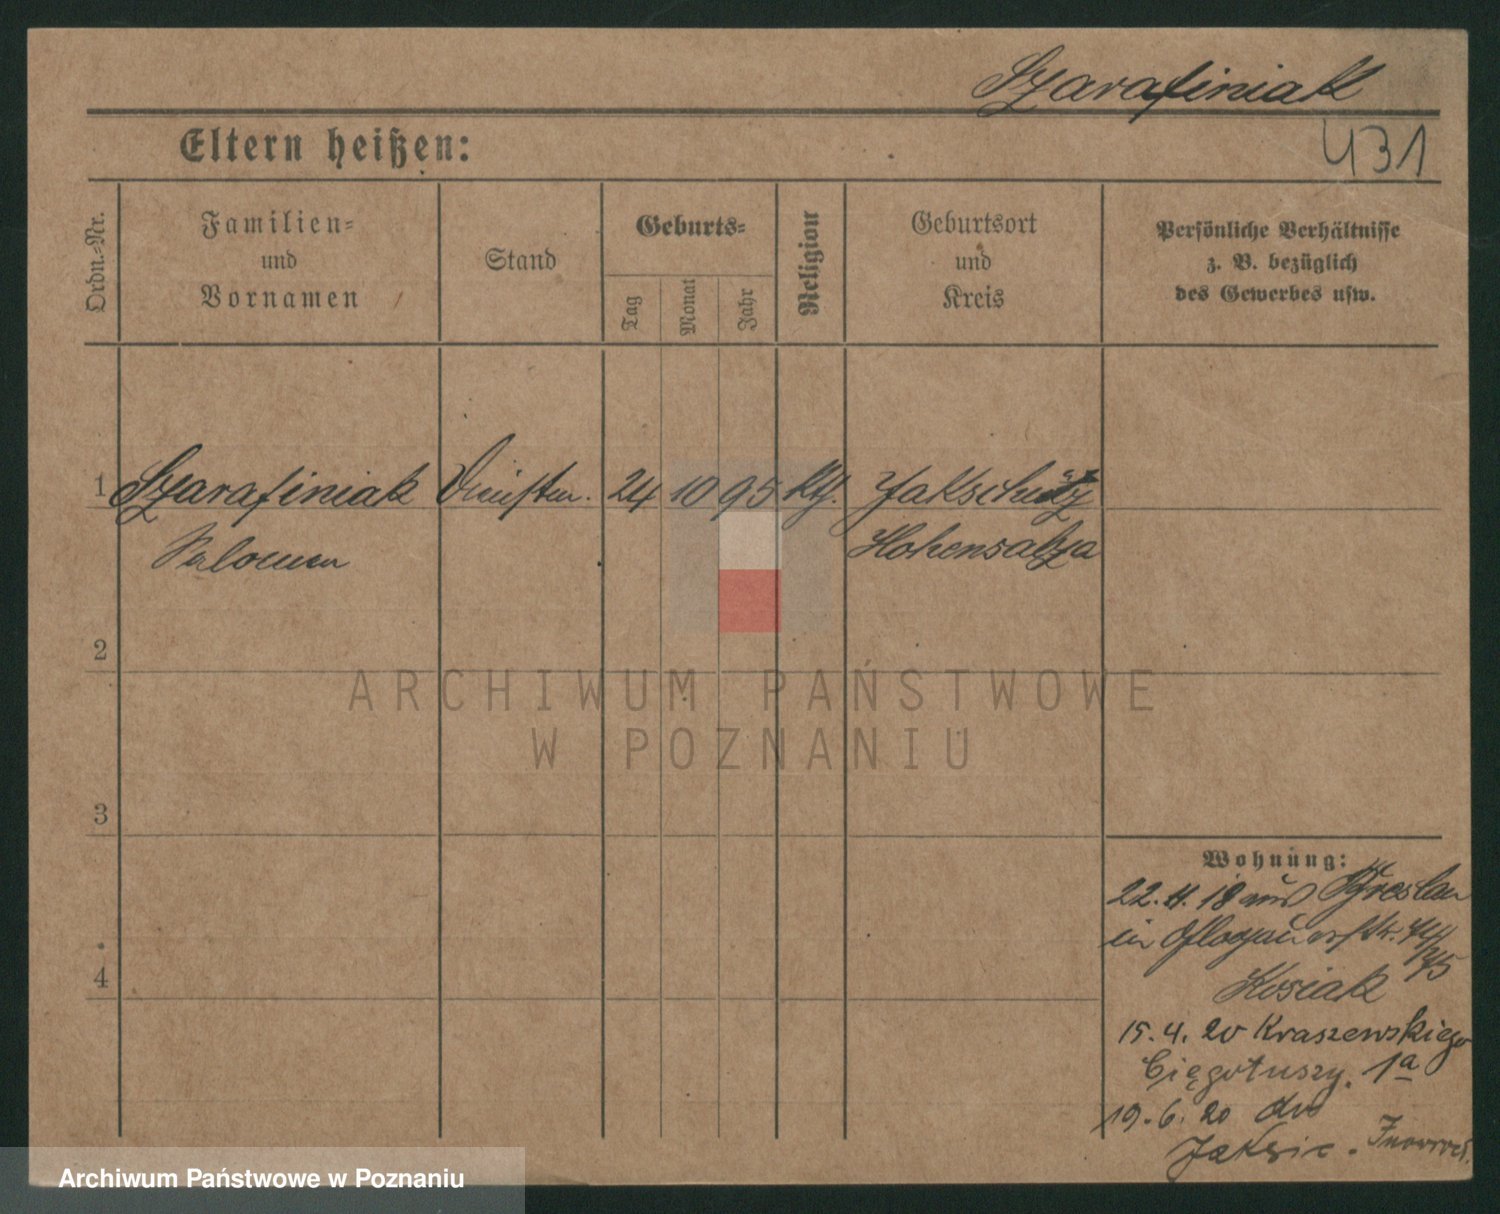 Szarafiniak
431
Eltern heißen:
Ordn.-Nr.
Familien-
und
Vornamen
Stand
Geburts-
Tag
Monat
Jahr
Religion
Geburtsort
und
Kreis
Persönliche Verhältnisse
z. B. bezüglich
des Gewerbes usw.
1 Szarafiniak 24 10 95 kth. Jakschütz
Salomea Hohensalza
2
3
4
ARCHIWUM PAŃSTWOWE
W POZNANIU
Wohnung:
22.11.18 aus Breslau
in Glogauerstr. 74/75
Kosiak
15.4.20 Kraszewskiego
1a
19.6.20 do
Jaksic. Inowrocł.
Archiwum Państwowe w Poznaniu